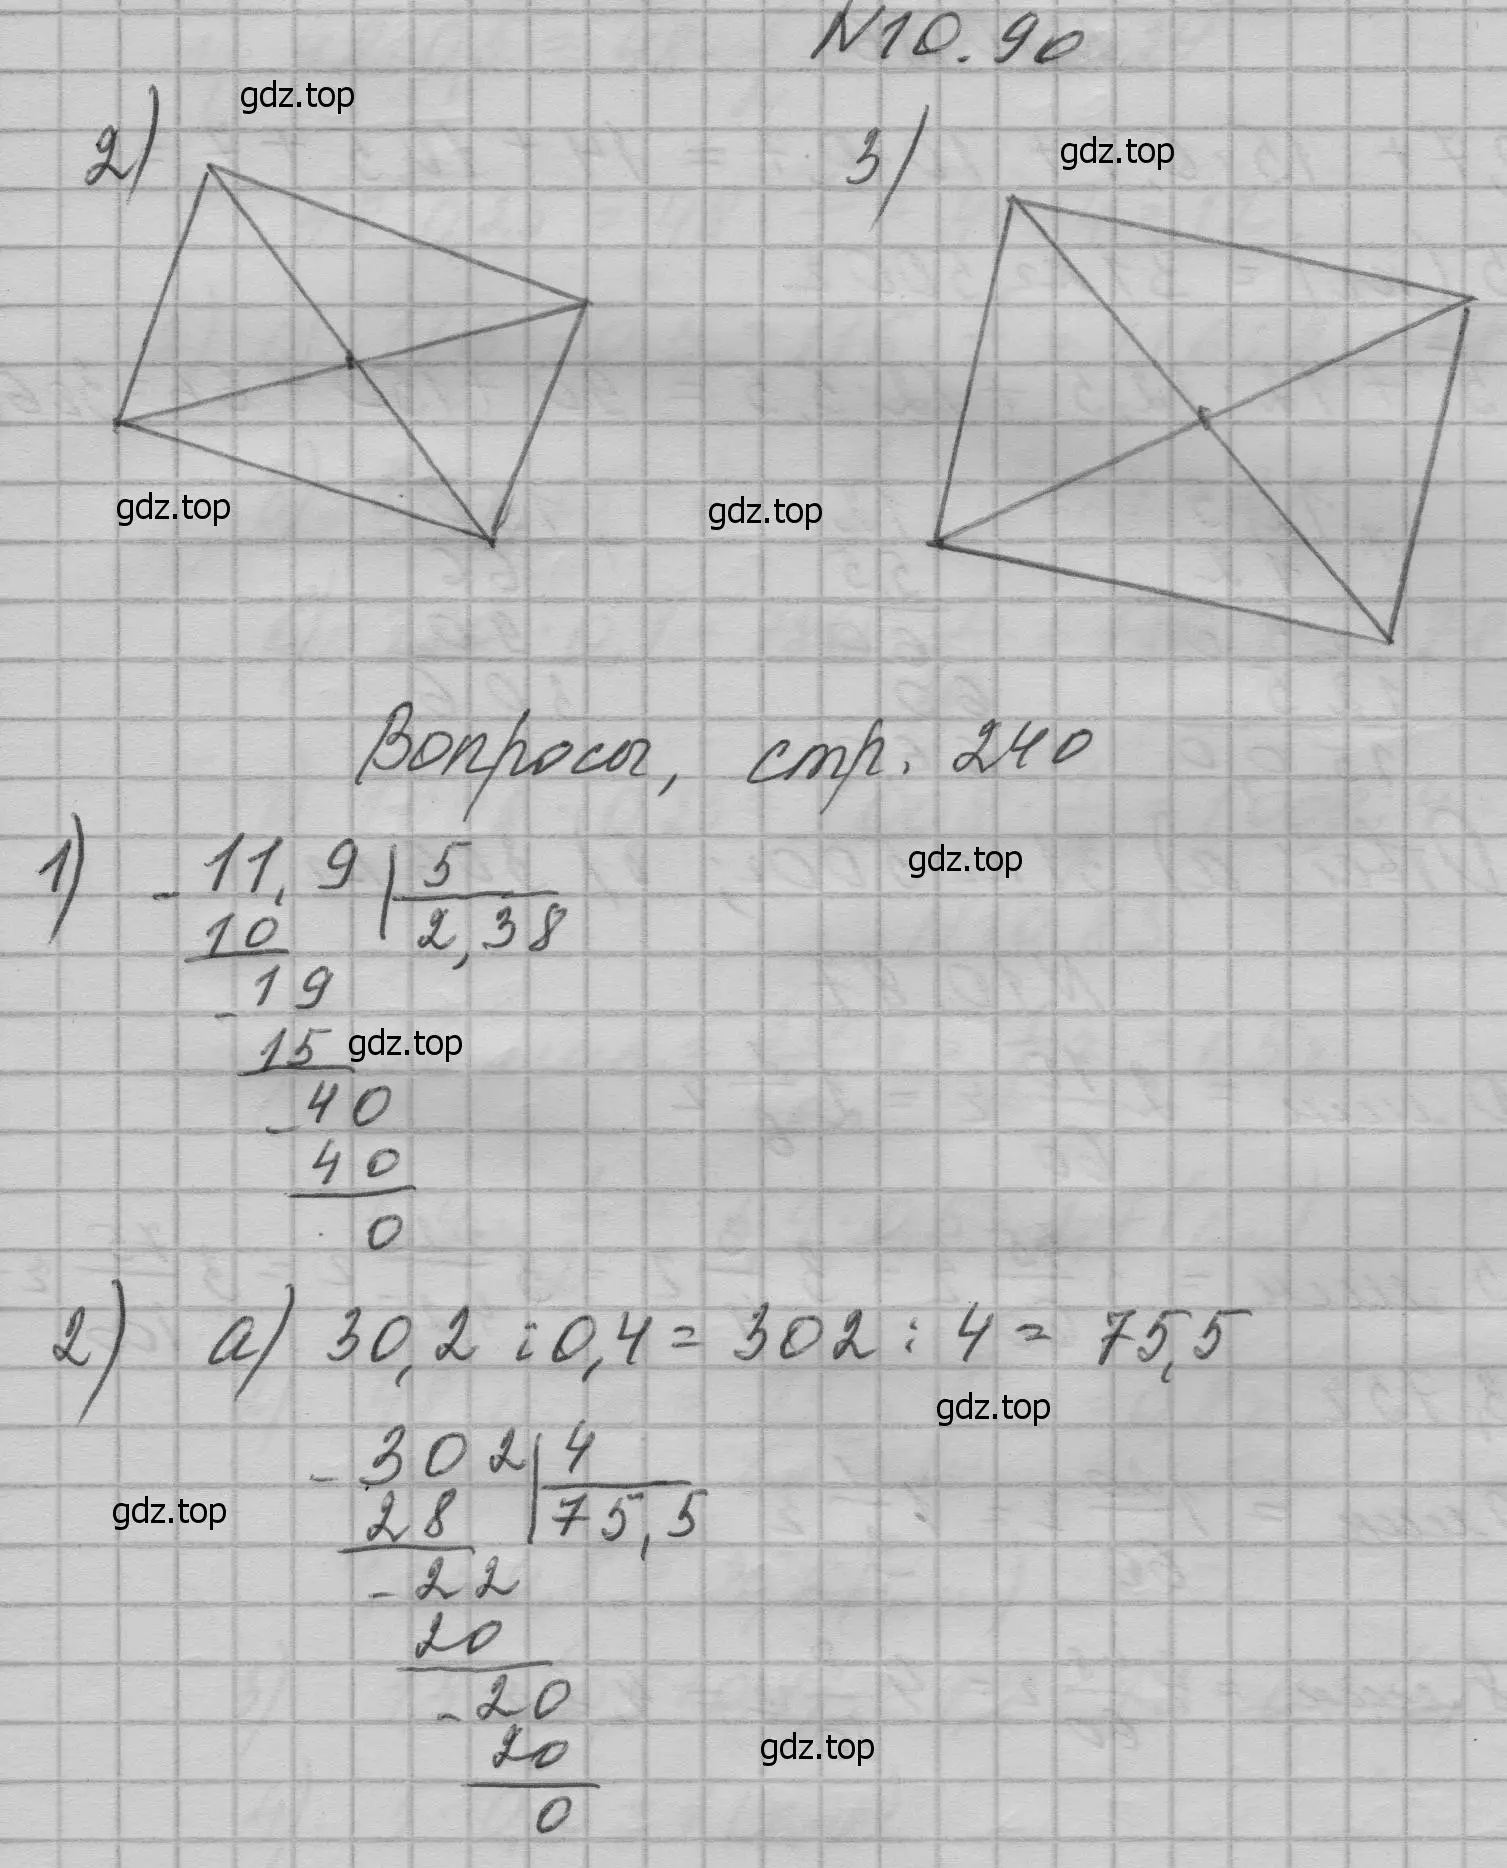 N10.90
gdz.top
2)
3)
gdz.top
gdz.top
gdz.top
Вопросы, стр. 240
1) - 11,9 | 5
gdz.top
10 2,38
- 19
15
gdz.top
- 40
40
0
2) а) 30,2 : 0,4 = 302 : 4 = 75,5
gdz.top
- 302 | 4
gdz.top
28 75,5
- 22
20
- 20
20
gdz.top
0